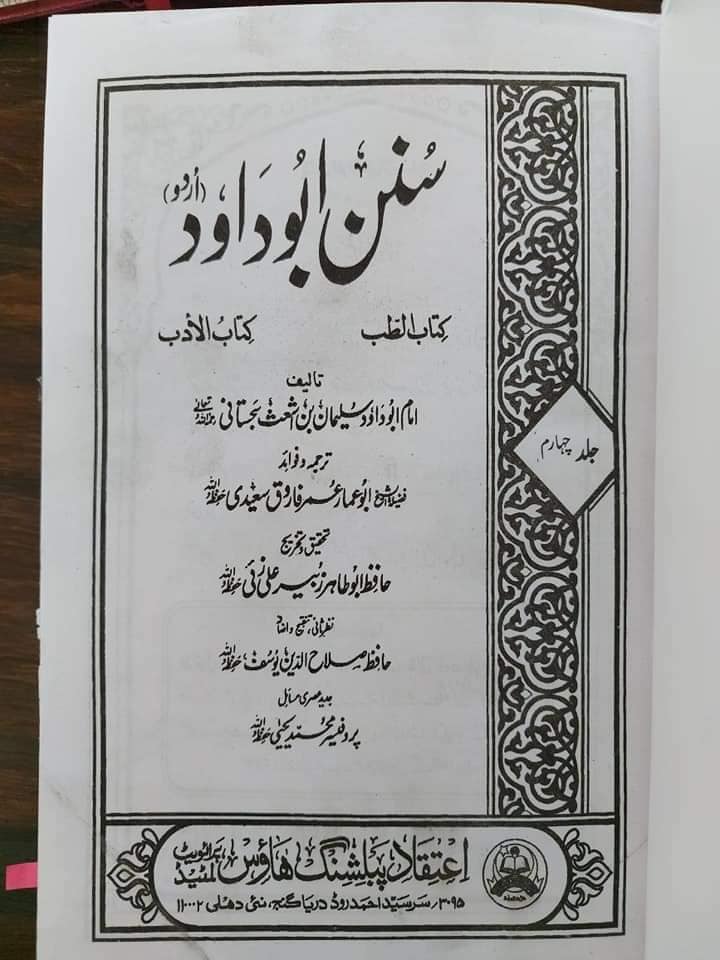 سُنن ابُوداوٗد (اُردو)
کتاب الطّب کتابُ الأدب
تالیف
امام ابوداود سلیمان بن اشعث سجستانی رحمہ اللہ تعالٰی
ترجمہ و فوائد
فضیلۃ الشیخ ابوعمار عمر فاروق سعیدی حفظہ اللہ
تحقیق و تخریج
حافظ ابوطاہر زبیر علی زئی حفظہ اللہ
نظرثانی، تنقیح و اضافہ
حافظ صلاح الدین یوسف حفظہ اللہ
جدید عصری مسائل
پروفیسر محمد یحییٰ حفظہ اللہ
جلد چہارم
اعتقاد پبلشنگ ھاؤس پرائیویٹ لمٹیڈ
۳۰۹۵/ سرسید احمد روڈ دریا گنج، نئی دھلی ۱۱۰۰۰۲